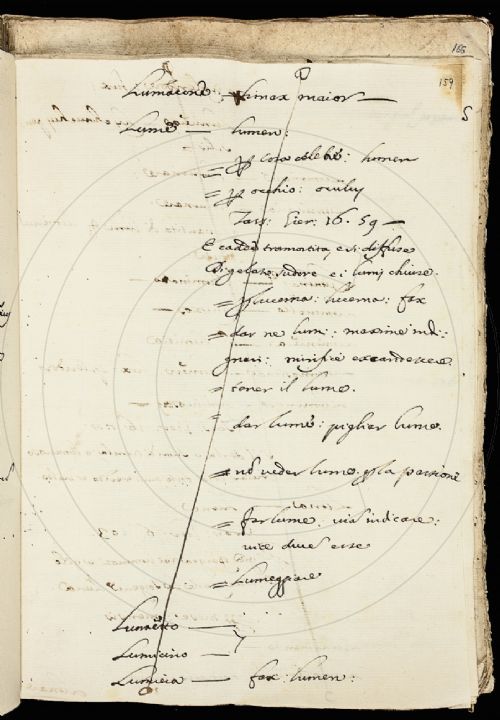 166
159
S
Lumacone — Limax maior —
Lume — lumen:
= p cosa celebre: lumen
= p occhio: oculus
Tass: Gier: 16. 59 —
E cadde tramortita, e si diffuse
Di gelato sudore e i lumi chiuse.
= p lucerna: lucerna: fax
= dar ne lumi: maxime indi:
gnari: mirifice excandescere.
= tener il lume.
= dar lume: pigliar lume
= nō veder lume p la passione
= far lume viā indicare:
vite duce esse
= Lumeggiare
Lumetto —
Lumicino —
Lumiera — fax: lumen: